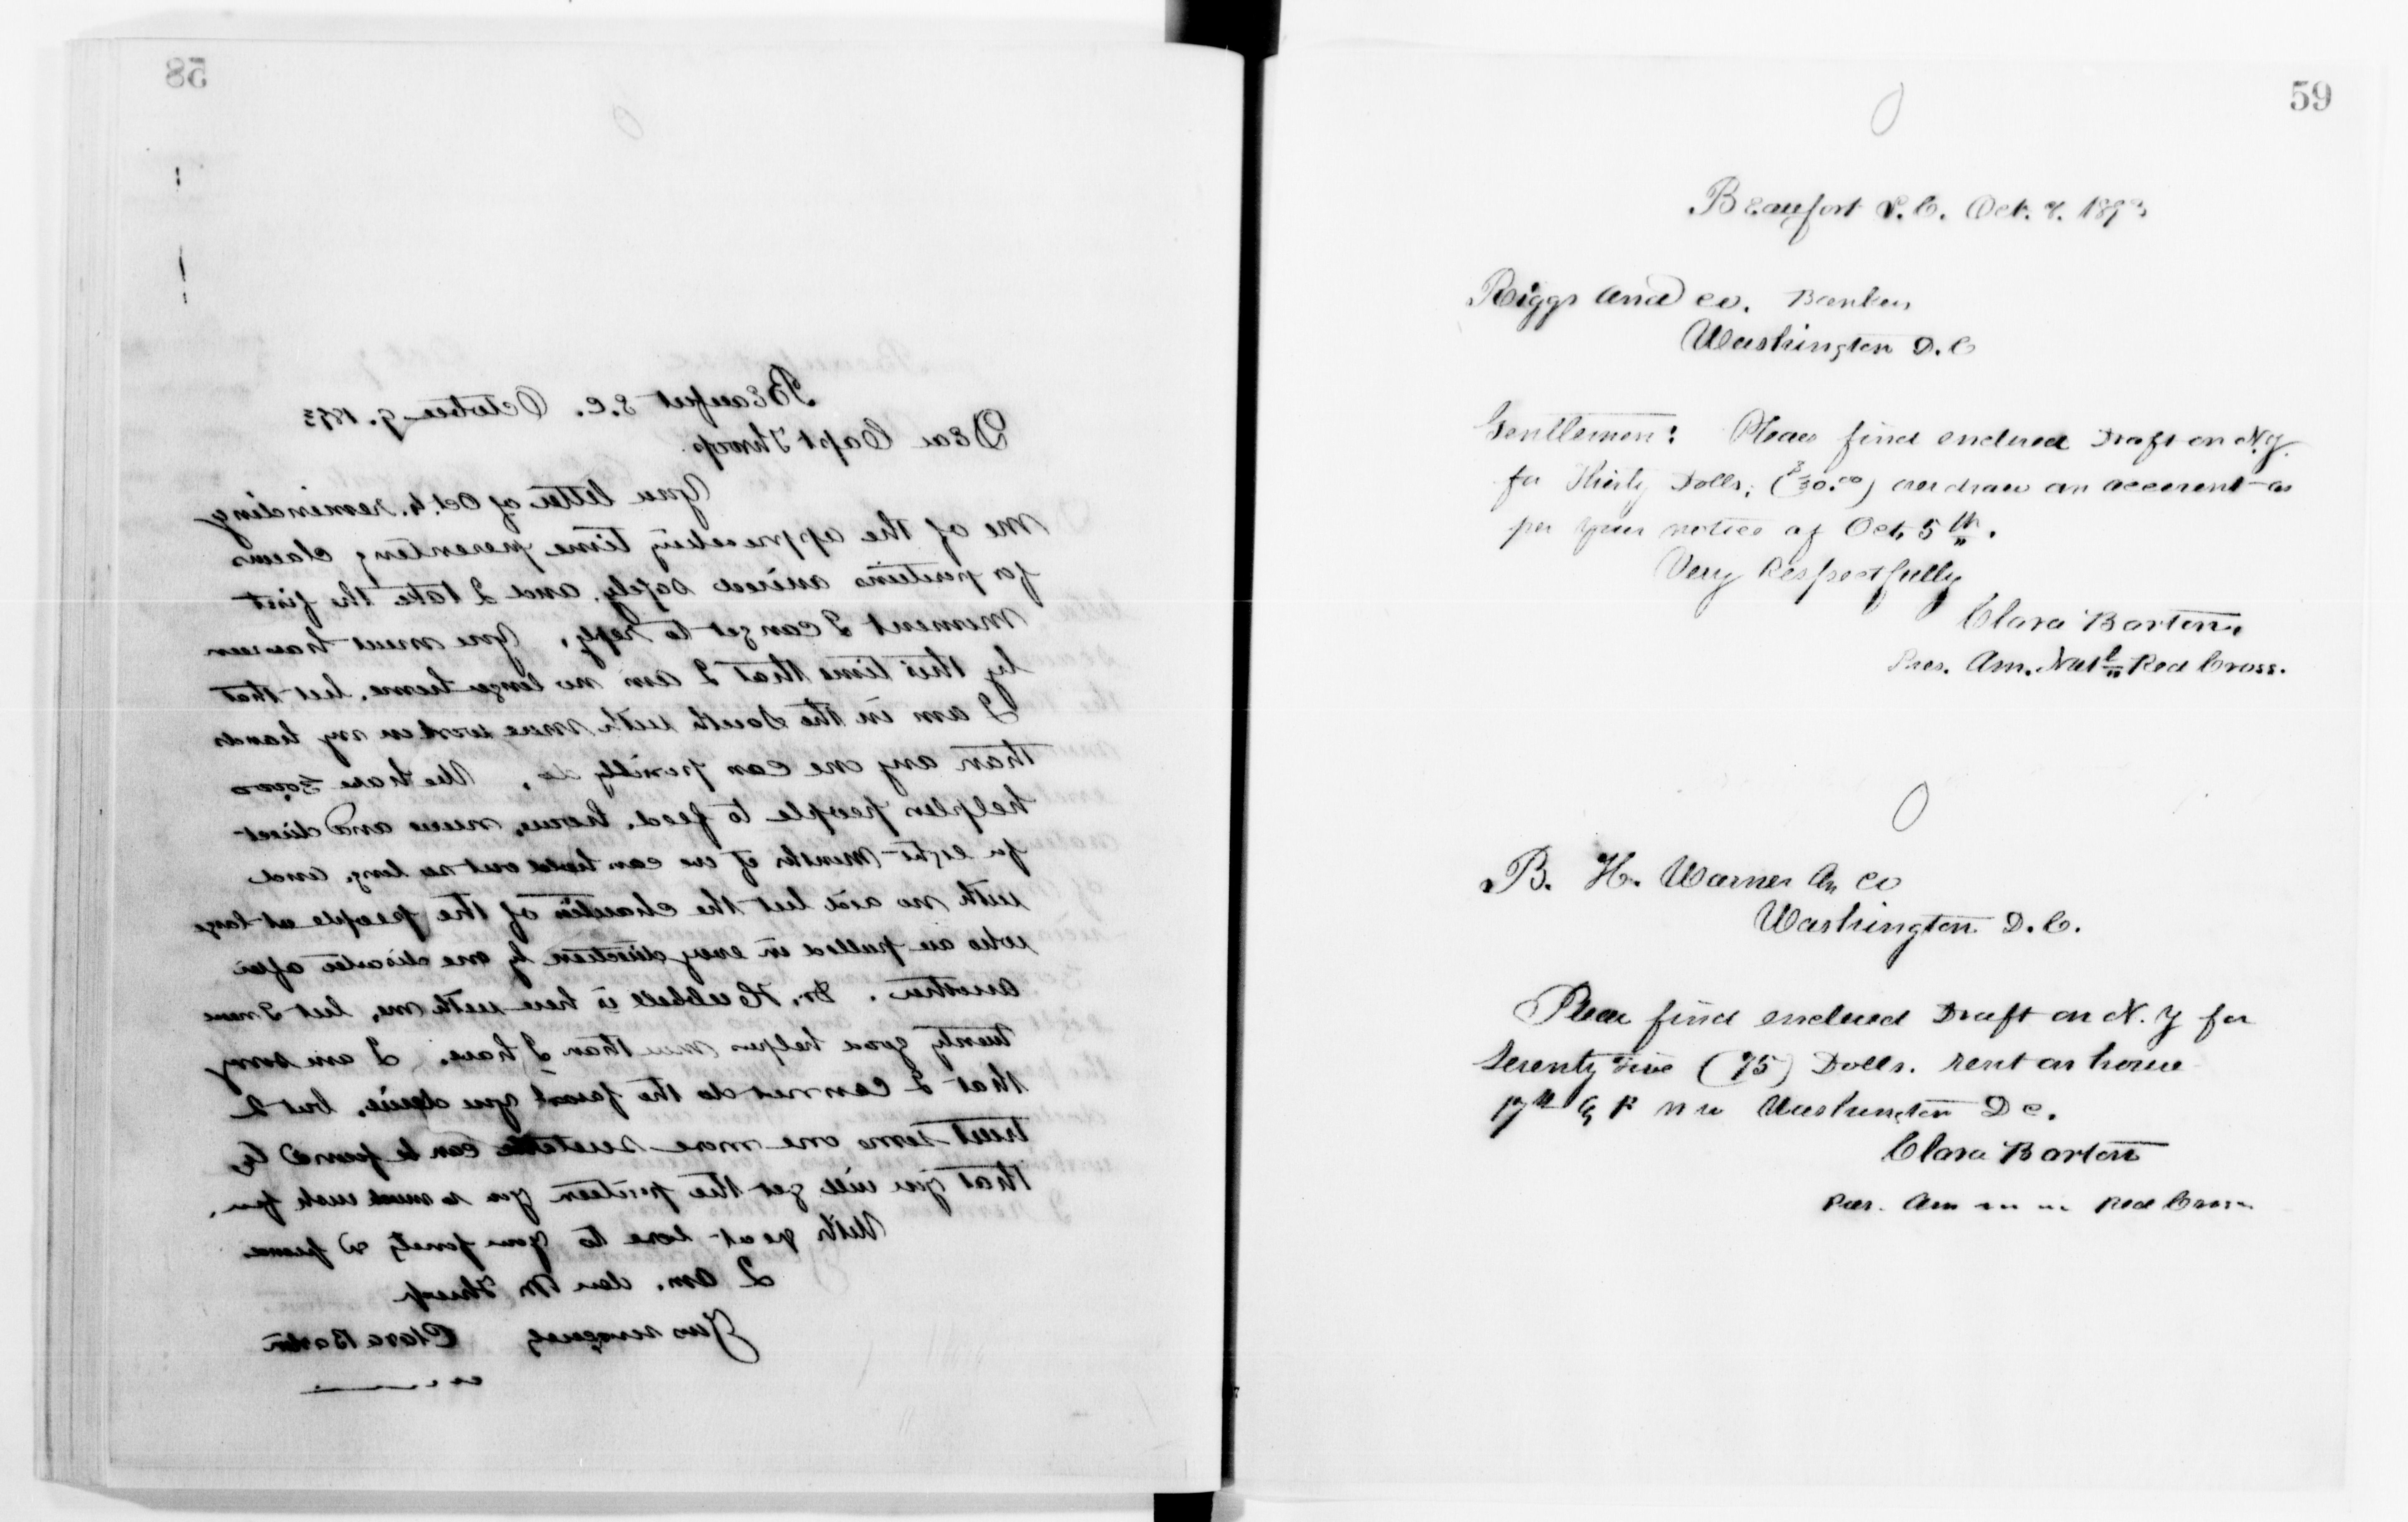 58
Beaufort S.C. October 9. 1893
Dear Capt Throop.
Your letter of Oct. 4. reminding
me of the approaching time presenting claims
for positions arrived safely, and I take the first
moment I can get to reply. You must have seen
by this time that I am no longer home, but that
I am in the South with more work on my hands
than any one can possibly do. We have 30,000
helpless people to feed, house, nurse and direct
for eight months if we can hold out so long, and
with no aid but the charities of the people at large
who are pulled in every direction by one disaster after
another. Dr. Hubbell is here with me, but I need
twenty good helpers more than I have. I am sorry
that I can not do the favor you desire, but I
trust some one more suitable can be found &
that you will get the position you so much wish for.
With great love to your family &
I am, dear Mr Throop
Yours sincerely, Clara Barton
59
Beaufort S.C. Oct. 9. 1893
Riggs and co. Bankers
Washington D.C
Gentlemen: Please find enclosed Draft on N.Y.
for Thirty Dolls; ($30.00) over draw on account as
per your notice of Oct, 5th.
Very Respectfully
Clara Barton,
Pres. Am. Natl Red Cross.
B. H. Warner & Co
Washington D.C.
Please find enclosed Draft on N.Y for
Seventy five (75) Dolls. rent on house
17th & F N W Washington D C.
Clara Barton
Pres. Am Red Cross